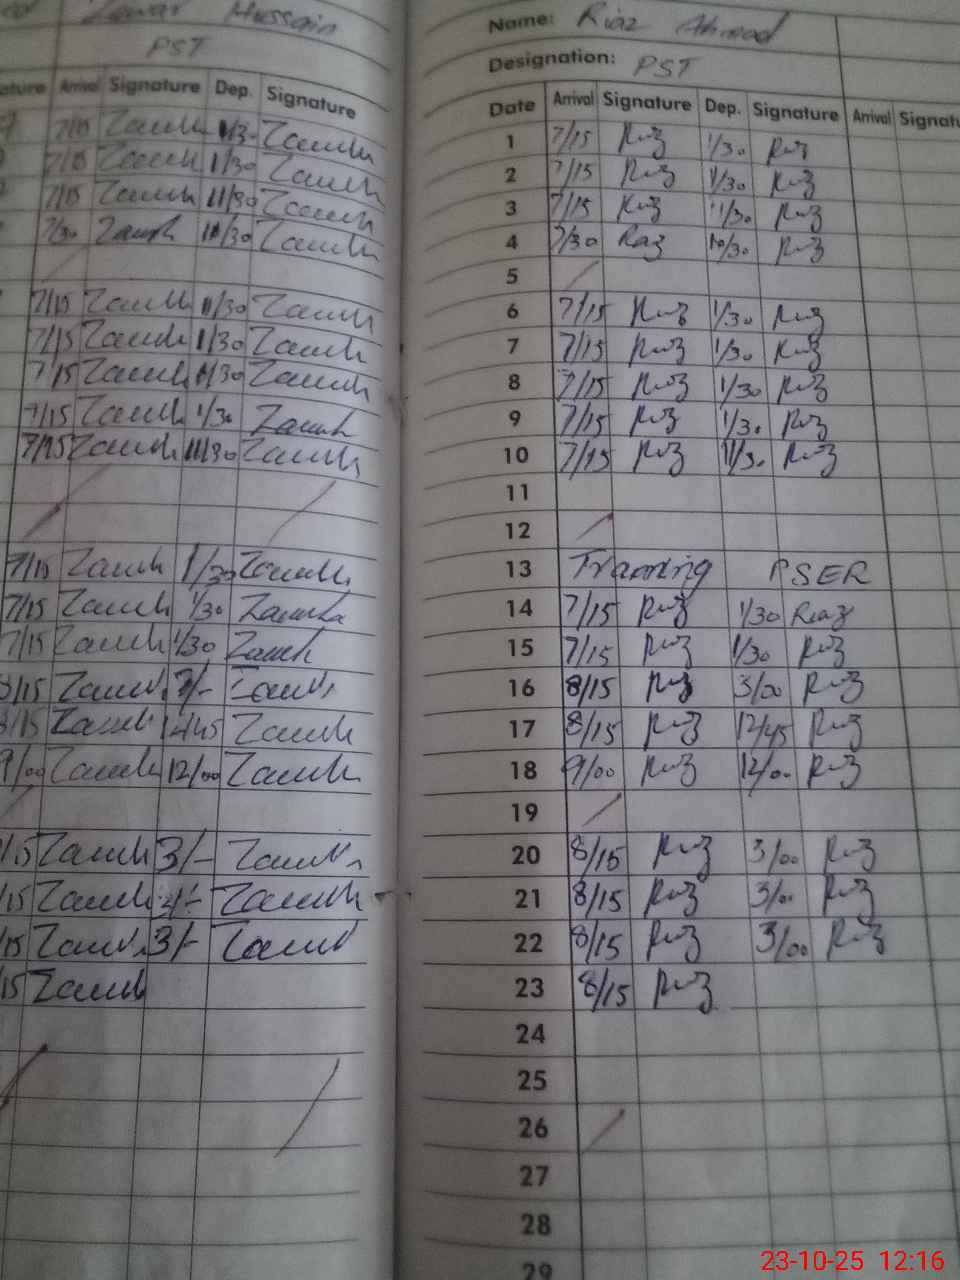 Hussain
PST
Arrival Signature Dep. Signature
7/15 Zawwh 1/30 Zawwh
7/15 Zawwh 1/30 Zawwh
7/15 Zawwh 11/30 Zawwh
7/30 Zawwh 10/30 Zawwh
7/15 Zawwh 11/30 Zawwh
7/15 Zawwh 1/30 Zawwh
7/15 Zawwh 1/30 Zawwh
7/15 Zawwh 1/30 Zawwh
7/15 Zawwh 11/30 Zawwh
7/15 Zawwh 1/30 Zawwh
7/15 Zawwh 1/30 Zawwh
7/15 Zawwh 1/30 Zawwh
8/15 Zawwh 3/- Zawwh
8/15 Zawwh 12/45 Zawwh
9/00 Zawwh 12/00 Zawwh
/15 Zawwh 3/- Zawwh
/15 Zawwh 3/- Zawwh
/15 Zawwh 3/- Zawwh
/15 Zawwh
Name: Riaz Ahmad
Designation: PST
Date Arrival Signature Dep. Signature Arrival
1 7/15 Riaz 1/30 Riaz
2 7/15 Riaz 1/30 Riaz
3 7/15 Riaz 11/30 Riaz
4 7/30 Riaz 10/30 Riaz
5
6 7/15 Riaz 1/30 Riaz
7 7/15 Riaz 1/30 Riaz
8 7/15 Riaz 1/30 Riaz
9 7/15 Riaz 1/30 Riaz
10 7/15 Riaz 11/30 Riaz
11
12
13 Training PSER
14 7/15 Riaz 1/30 Riaz
15 7/15 Riaz 1/30 Riaz
16 8/15 Riaz 3/00 Riaz
17 8/15 Riaz 12/45 Riaz
18 9/00 Riaz 12/00 Riaz
19
20 8/15 Riaz 3/00 Riaz
21 8/15 Riaz 3/00 Riaz
22 8/15 Riaz 3/00 Riaz
23 8/15 Riaz
24
25
26
27
28
29
23-10-25 12:16